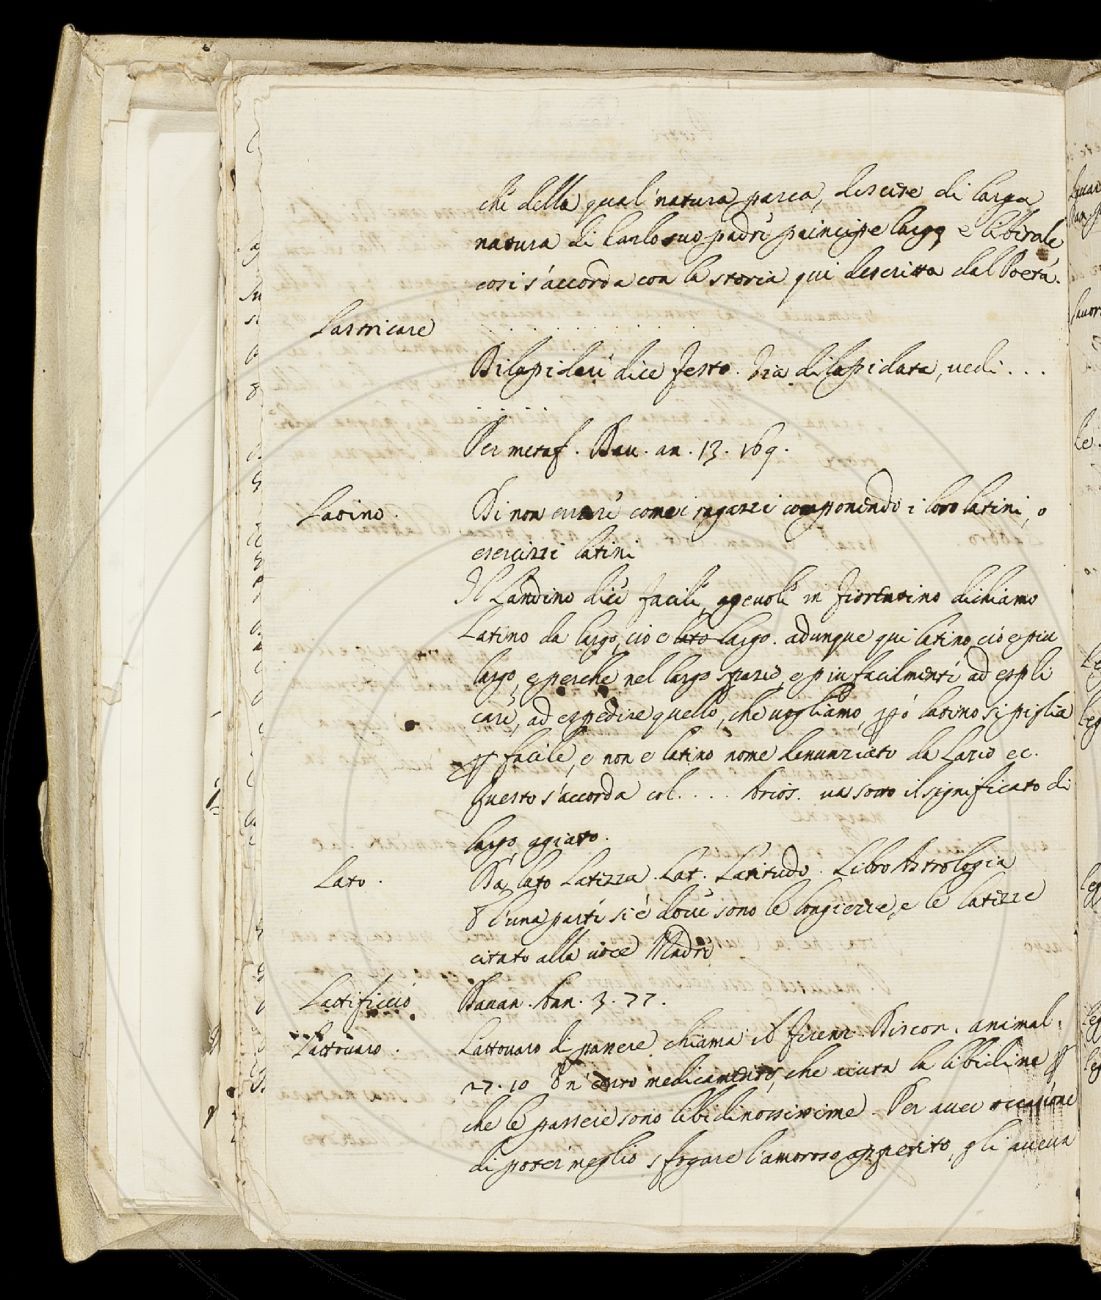 che della qual natura parca, descese di larga
natura di Carlo suo padre principe largo e liberale
cosi s'accorda con la storia qui descritta dal Poeta.
Lastricare . . . . . . . . .
Dilapidare dice Festo. Via dilapidata, vedi . . .
. . . . . .
Per metaf. Dav. an. 13. 169.
Latino. Di non errare come i ragazzi componendo i loro latini, o
esercizzi latini
Il Landino dice facile, agevole in fiorentino dichiamo
Latino da largo, cio e lato largo. adunque qui latino, cio e piu
largo, e perche nel largo spazio, e piu facilmente ad espli
care, ad espedire quello, che vogliamo, però latino si piglia
per facile, e non e latino nome denunziato da Lazio ec.
Questo s'accorda col . . . . Arios. va sotto il significato di
largo, agiato.
Lato. Da lato Latezza. Lat. Latitudo. Libro Astrologia
E l'una parte si è dove sono le longiezze, e le latezze
citato alla voce Madre
Lattificcio Davan. An. 3. 77.
Lattovaro. Lattovaro di pamere chiama il Firenz. Discor. animal.
27. 10 Un certo medicamento, che aiuta la libidine per
che le passere sono libidinosissime. Per aver occasione
di poter meglio sfogare l'amoroso appetito, gli aveva